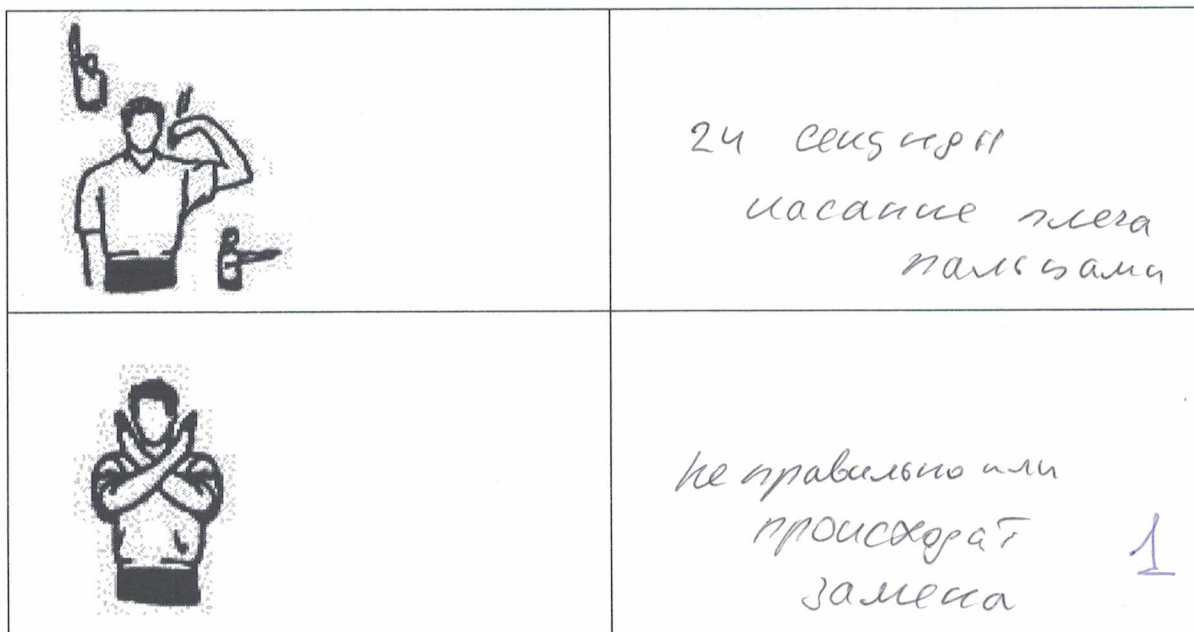 24 секунды
касание плеча
пальцами
не правильно или
происходат
замена
1